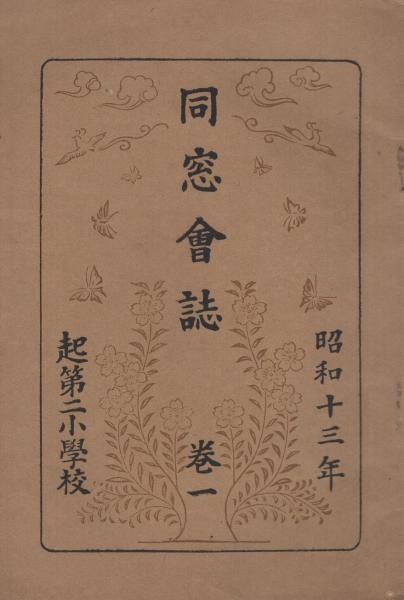 昭和十三年
同窓會誌
巻一
起第二小學校